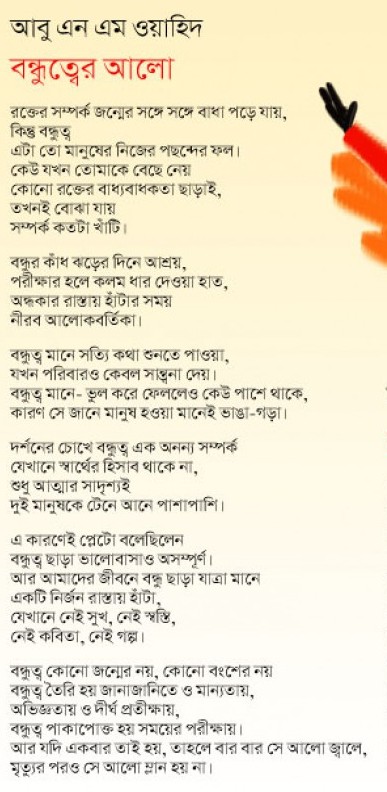 আবু এন এম ওয়াহিদ
বন্ধুত্বের আলো
রক্তের সম্পর্ক জন্মের সঙ্গে সঙ্গে বাধা পড়ে যায়,
কিন্তু বন্ধুত্ব
এটা তো মানুষের নিজের পছন্দের ফল।
কেউ যখন তোমাকে বেছে নেয়
কোনো রক্তের বাধ্যবাধকতা ছাড়াই,
তখনই বোঝা যায়
সম্পর্ক কতটা খাঁটি।
বন্ধুর কাঁধ ঝড়ের দিনে আশ্রয়,
পরীক্ষার হলে কলম ধার দেওয়া হাত,
অন্ধকার রাস্তায় হাঁটার সময়
নীরব আলোকবর্তিকা।
বন্ধুত্ব মানে সত্যি কথা শুনতে পাওয়া,
যখন পরিবারও কেবল সান্ত্বনা দেয়।
বন্ধুত্ব মানে- ভুল করে ফেললেও কেউ পাশে থাকে,
কারণ সে জানে মানুষ হওয়া মানেই ভাঙা-গড়া।
দর্শনের চোখে বন্ধুত্ব এক অনন্য সম্পর্ক
যেখানে স্বার্থের হিসাব থাকে না,
শুধু আত্মার সাদৃশ্যই
দুই মানুষকে টেনে আনে পাশাপাশি।
এ কারণেই প্লেটো বলেছিলেন
বন্ধুত্ব ছাড়া ভালোবাসাও অসম্পূর্ণ।
আর আমাদের জীবনে বন্ধু ছাড়া যাত্রা মানে
একটি নির্জন রাস্তায় হাঁটা,
যেখানে নেই সুখ, নেই স্বস্তি,
নেই কবিতা, নেই গল্প।
বন্ধুত্ব কোনো জন্মের নয়, কোনো বংশের নয়
বন্ধুত্ব তৈরি হয় জানাজানিতে ও মান্যতায়,
অভিজ্ঞতায় ও দীর্ঘ প্রতীক্ষায়,
বন্ধুত্ব পাকাপোক্ত হয় সময়ের পরীক্ষায়।
আর যদি একবার তাই হয়, তাহলে বার বার সে আলো জ্বালে,
মৃত্যুর পরও সে আলো ম্লান হয় না।